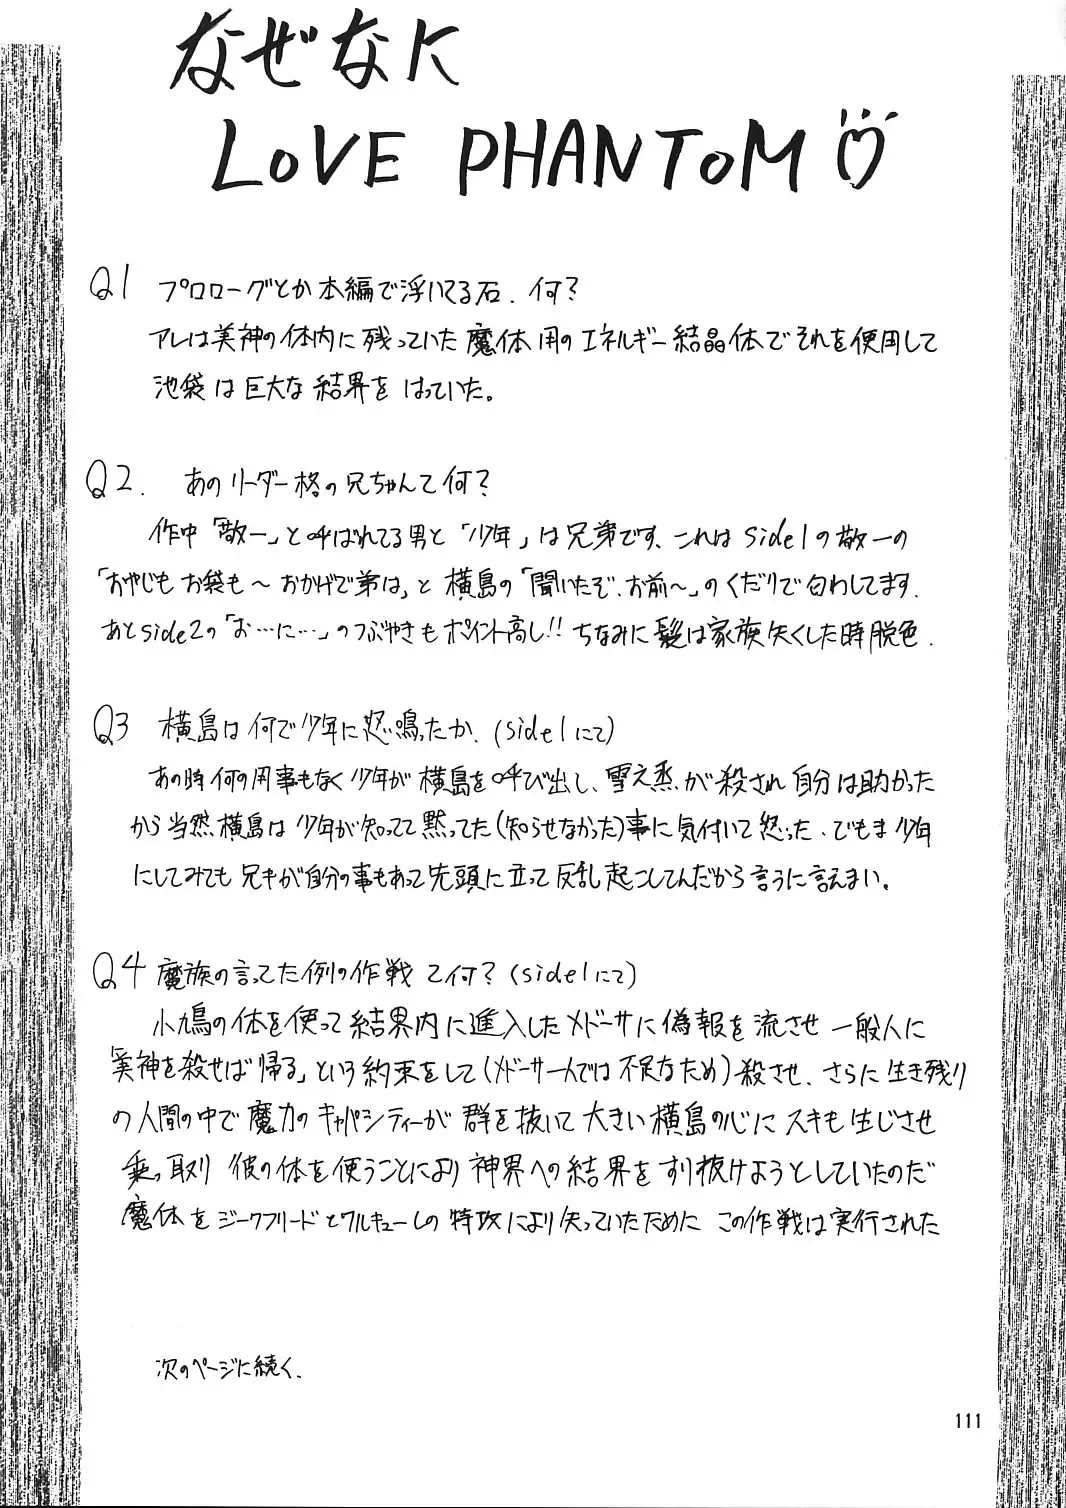 なぜなに
LOVE PHANTOM
Q1 プロローグとか本編で浮いてる石、何?
アレは美神の体内に残っていた魔体用のエネルギー結晶体でそれを使用して
池袋は巨大な結界をはっていた。
Q2. あのリーダー格の兄ちゃんて何?
作中「敬一」と呼ばれてる男と「少年」は兄弟です、これはside1の敬一の
「おやじもお袋も〜おかげで弟は」と横島の「聞いたぞ、お前〜」のくだりで匂わしてます.
あとside2の「お…に…」のつぶやきもポイント高し!! ちなみに髪は家族失くした時脱色.
Q3 横島は何で少年に怒鳴ったか.(side1にて)
あの時何の用事もなく少年が横島を呼び出し、雪之丞が殺され自分は助かった
から当然横島は少年が知ってて黙ってた(知らせなかった)事に気付いて怒った、でもま少年
にしてみても兄キが自分の事もあって先頭に立って反乱起こしてんだから言うに言えまい。
Q4 魔族の言ってた例の作戦て何?(side1にて)
小鳩の体を使って結界内に進入したメドーサに偽報を流させ一般人に
「美神を殺せば帰る」という約束をして(メドーサ一人では不足なため)殺させ、さらに生き残り
の人間の中で魔力のキャパシティーが群を抜いて大きい横島の心にスキも生じさせ
乗っ取り彼の体を使うことにより神界への結界をすり抜けようとしていたのだ
魔体をジークフリードとワルキューレの特攻により失っていたためにこの作戦は実行された
次のページに続く.
111